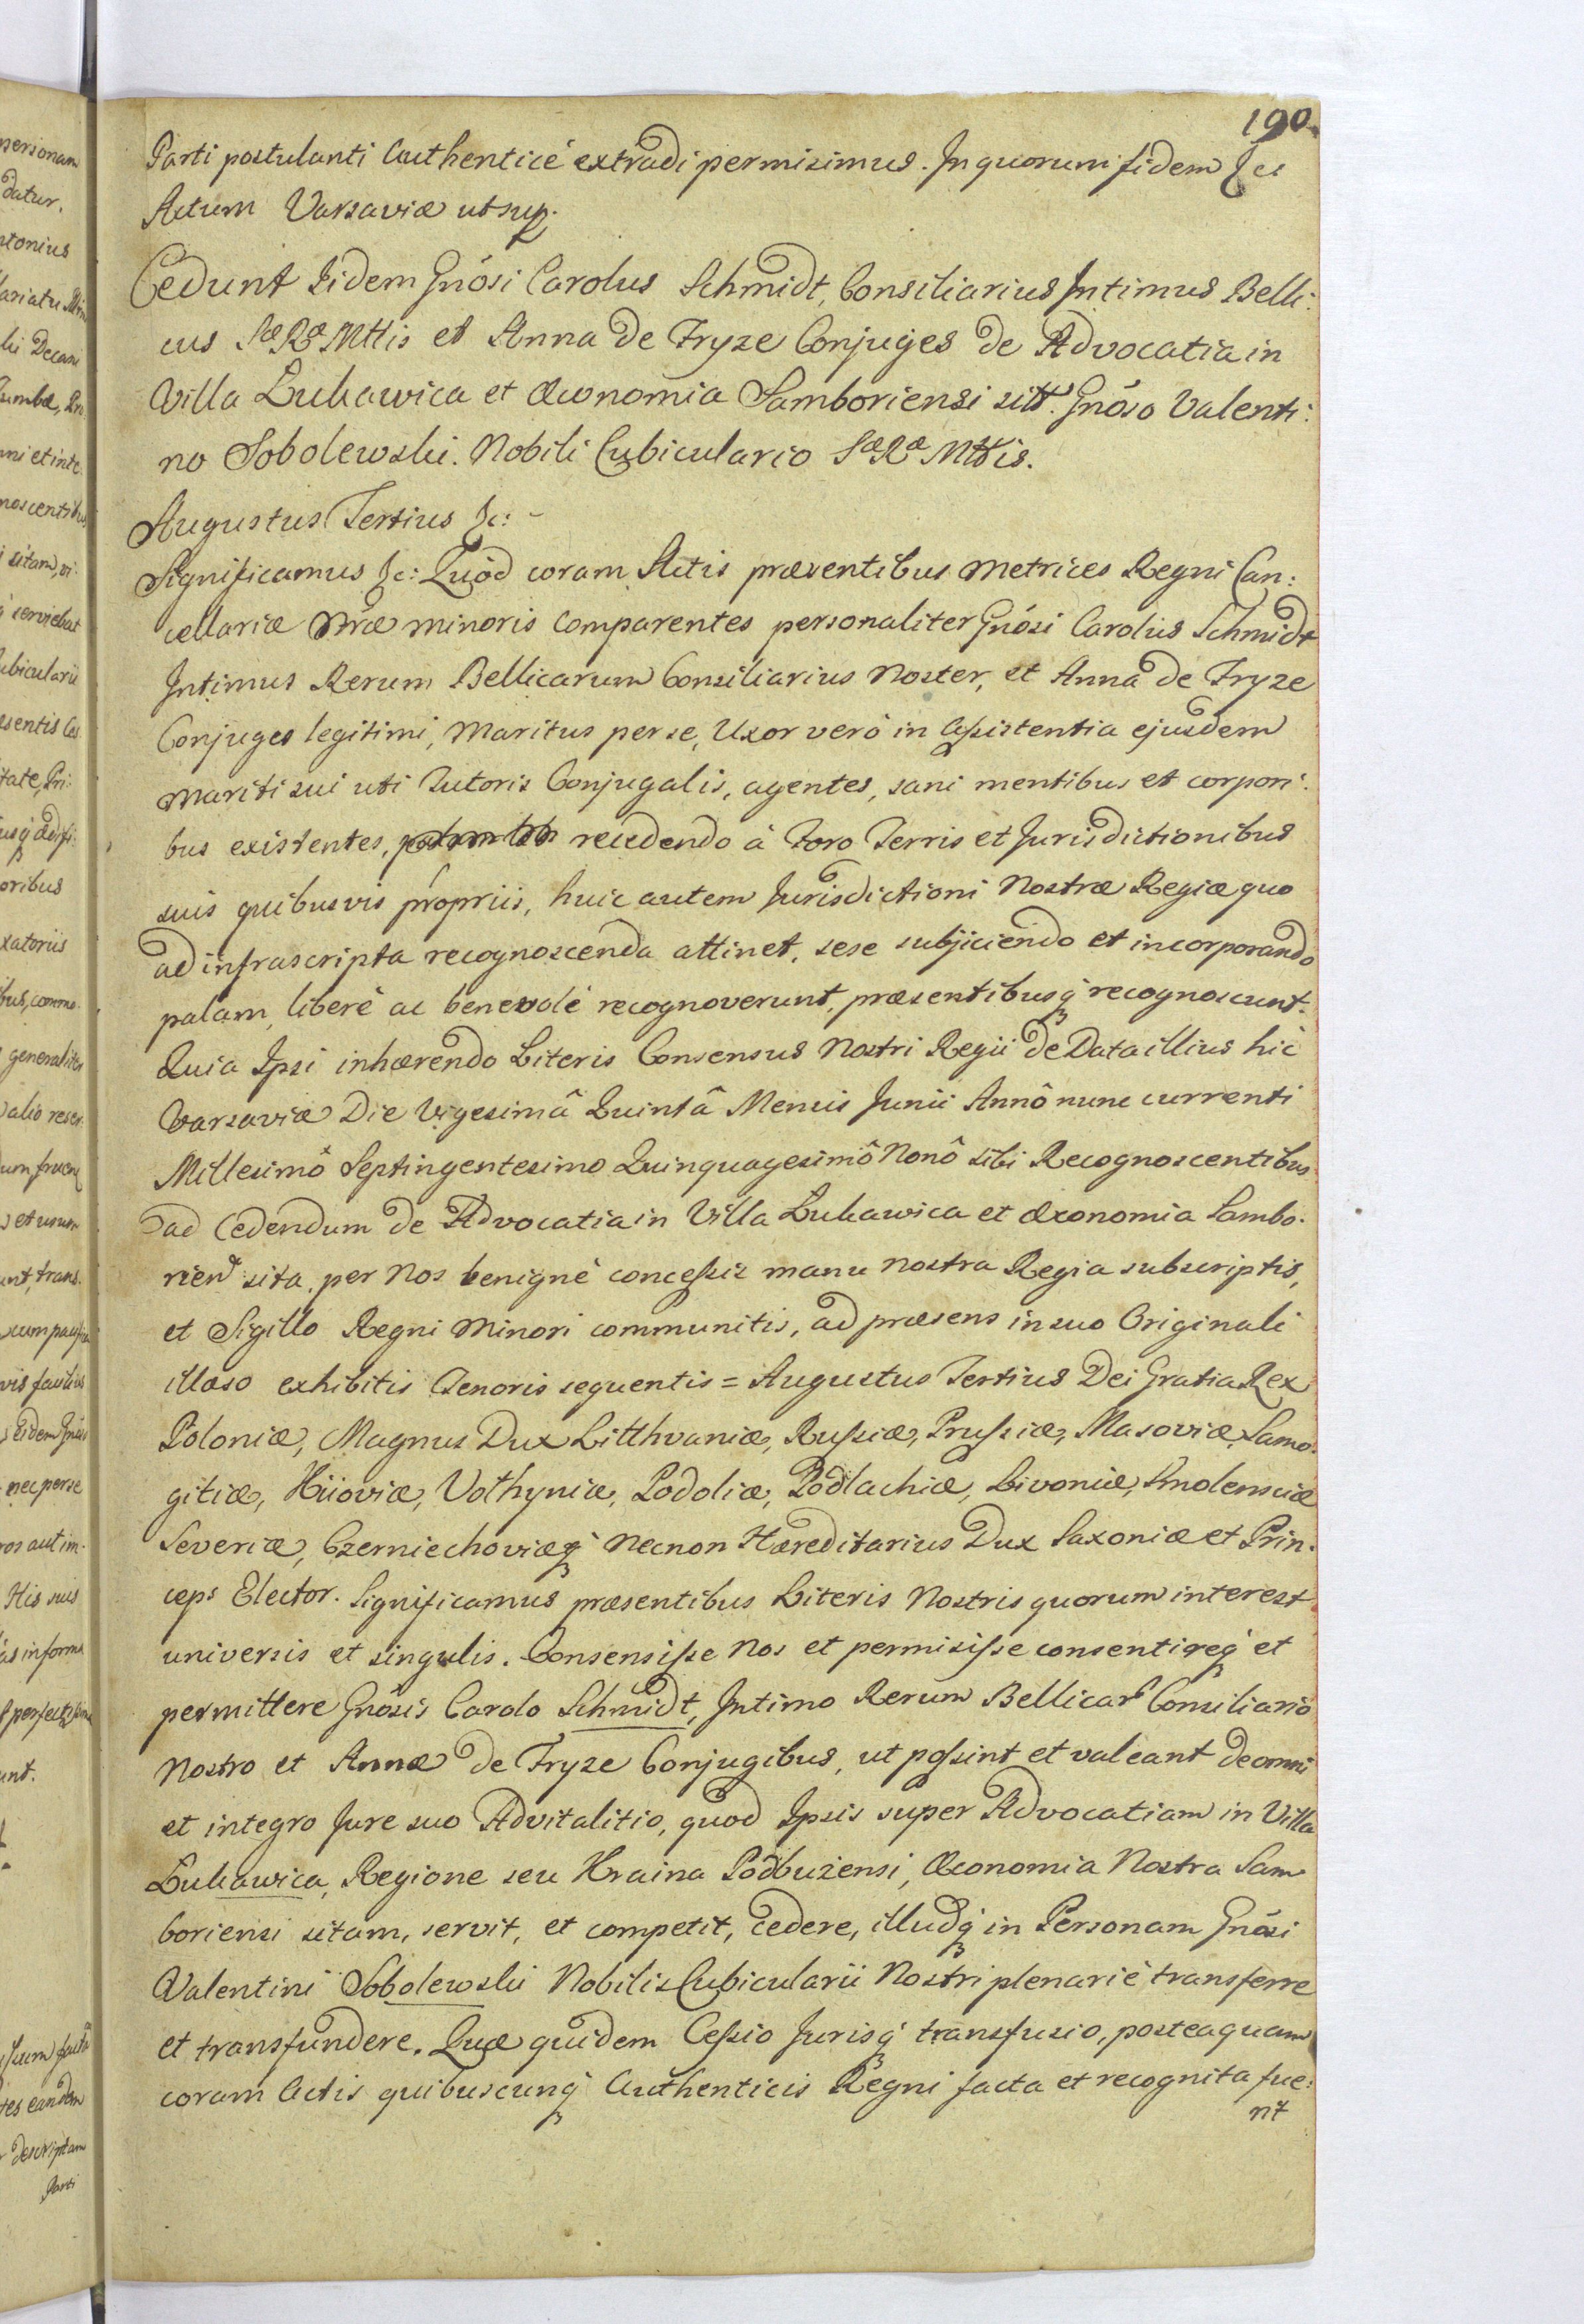 190.
Parti postulanti Authenticè extradi permisimus. In quorum fidem &c
Actum Varsaviæ ut sup.
Cedunt Iidem Gnósi Carolus Schmidt, Consiliarius Intimus Belli:
cus Sæ Ræ Mttis et Anna de Fryze Conjuges de Advocatia in
Villa Łukawica et Œconomia Samboriensi sitt. Gnóso Valenti:
no Sobolewski. Nobili Cubiculario Sæ Ræ Mttis.
Augustus Tertius &c: -
Significamus &c: Quòd coram Actis præsentibus Metrices Regni Can:
cellariæ Nræ minoris Comparentes personaliter Gnósi Carolus Schmidt
Intimus Rerum Bellicarum Consiliarius Noster, et Anna de Fryze
Conjuges legitimi, Maritus per se, Uxor verò in Assistentia ejusdem
Mariti sui uti Tutoris Conjugalis, agentes, sani mentibus et corpori:
bus existentes, recedendo à Foro Terris et Jurisdictionibus
suis quibusvis propriis, huic autem Jurisdictioni Nostræ Regiæ quo
ad infrascripta recognoscenda attinet, sese subjiciendo et incorporando
palam, liberè ac benevolè recognoverunt, præsentibusq́ recognoscunt.
Quia Ipsi inhærendo Literis Consensus Nostri Regii de Data illius hic
Varsaviæ Die Vigesimâ Quintâ Mensis Junii Annô nunc currenti
Millesimô Septingentesimo Quinquagesimô Nonô sibi Recognoscentibus
ad Cedendum de Advocatia in Villa Łukawica et Œconomia Sambo:
rien sita, per Nos benignè concessis manu nostra Regia subscriptis,
et Sigillo Regni Minori communitis, ad præsens in suo Originali
illæso exhibitis Tenoris sequentis = Augustus Tertius Dei Gratia Rex
Poloniæ, Magnus Dux Litthvaniæ, Russiæ, Prussiæ, Masoviæ, Samo:
gitiæ, Kiioviæ, Volhyniæ, Podoliæ, Podlachiæ, Livoniæ, Smolensciæ
Severiæ, Czerniechoviæq́ Necnon Hæreditarius Dux Saxoniæ et Prin:
ceps Elector. Significamus præsentibus Literis Nostris quorum interest
universis et singulis. Consensisse Nos et permisisse consentireq́ et
permittere Gnósis Carolo Schmidt, Intimo Rerum Bellicar Consiliario
Nostro et Annæ de Fryze Conjugibus, ut possint et valeant de omni
et integro Jure suo Advitalitio, quod Ipsis super Advocatiam in Villa
Łukawica, Regione seu Kraina Podbużensi, Œconomia Nostra Sam
boriensi sitam, servit, et competit, cedere, illudq́ in Personam Gnósi
Valentini Sobolewski Nobilis Cubicularii Nostri plenariè transferre
et transfundere. Quæ quidem Cessio Jurisq́ transfusio, posteaquam
coram Actis quibuscunq́ Authenticis Regni facta et recognita fue:
rit